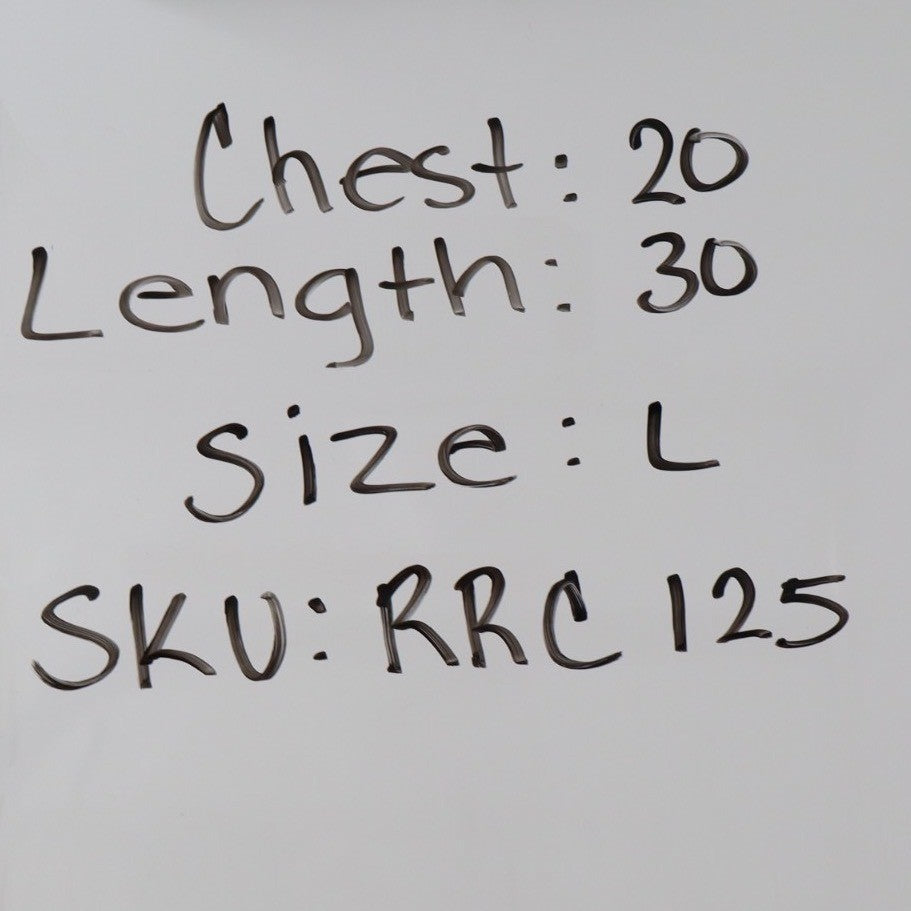 Chest: 20
Length: 30
Size: L
SKU: RRC 125